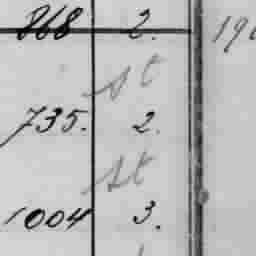 868 2. 190
st
735. 2.
st
1004 3.